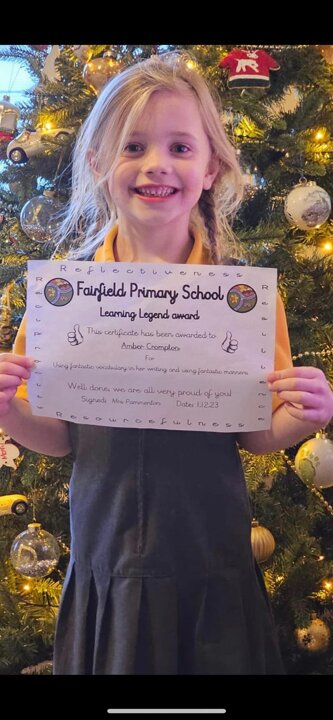 Reflectiveness
Fairfield Primary School
Learning Legend award
This certificate has been awarded to
Amber Crompton
For
Using fantastic vocabulary in her writing and using fantastic manners.
Well done, we are all very proud of you!
Signed: Mrs Pammenton Date: 1.12.23
Resourcefulness